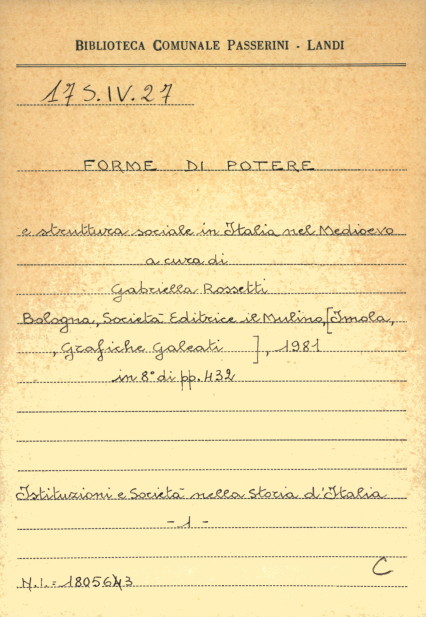 BIBLIOTECA COMUNALE PASSERINI - LANDI
17 S.IV.27
FORME DI POTERE
e struttura sociale in Italia nel Medioevo
a cura di
Gabriella Rossetti
Bologna, Società Editrice il Mulino, [Imola,
, Grafiche Galeati ], 1981
in 8° di pp. 432
Istituzioni e Società nella Storia d'Italia
- 1 -
C
N.I. =